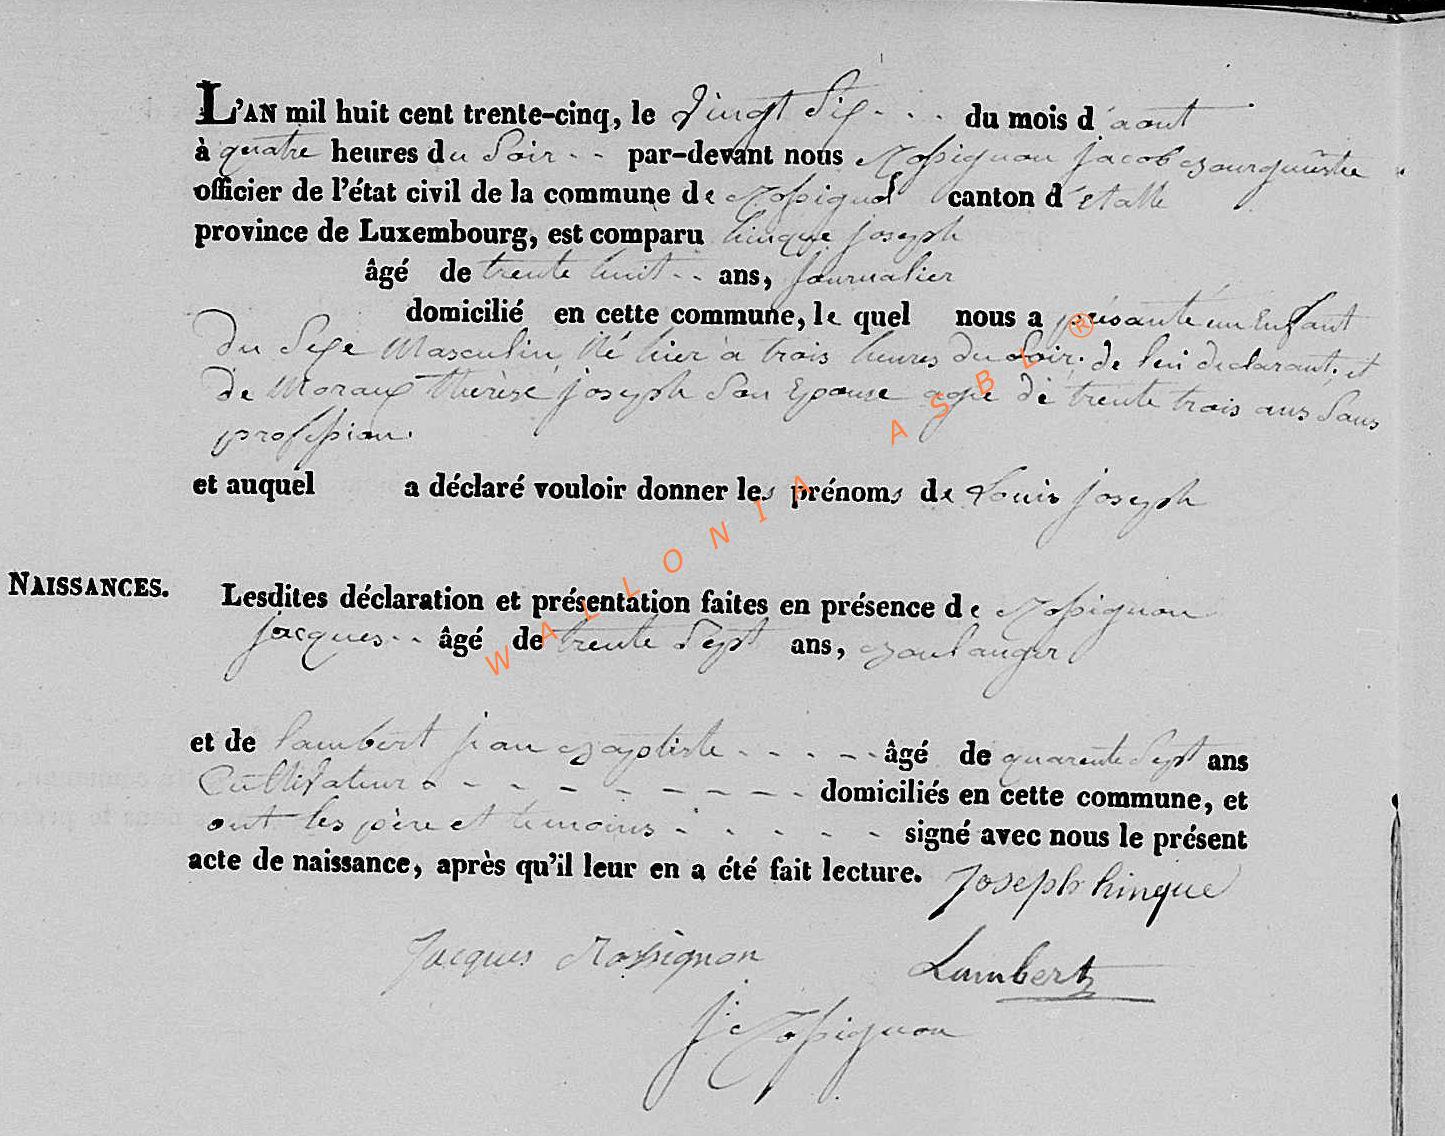 L'AN mil huit cent trente-cinq, le Vingt Six - - - du mois d'aout
à quatre heures du Soir - - par-devant nous Rossignon Jacob Bourguestre
officier de l'état civil de la commune de Rossignol canton d'étalle
province de Luxembourg, est comparu hinque Joseph
âgé de trente huit - - ans, Journalier
domicilié en cette commune, le quel nous a présanté un Enfant
Du Sexe Masculin, Né hier a trois heures du Soir. de lui declarant. et
de Moraux Therese joseph Son Epouse agée de trente trois ans Sans
profession.
et auquel a déclaré vouloir donner les prénoms de Louis joseph
NAISSANCES.
Lesdites déclaration et présentation faites en présence de Rossignon
jacques - - âgé de trente Sept ans, Boulanger
et de lambert jean Baptiste - - - - - âgé de quarente Sept ans
Cultivateur - - - - - - - - - domiciliés en cette commune, et
ont les père et temoins - - - - - signé avec nous le présent
acte de naissance, après qu'il leur en a été fait lecture. Joseph hinque
Jacques Rossignon Lambert
J. Rossignon
WALLONIA ASBL ®